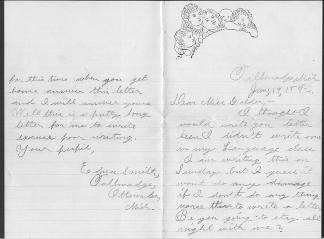 Tallmadge, Mich
Dear Miss
I thought I
would write you a letter
I didn't write one
in my Language class
I am writing this on
Sunday but I guess it
wont do any damage
if I don't do any thing
worse than to write a letter
Are you going to stay all
night with me?
for this time when you get
home answer this letter
and I will answer yours
Well this is a pretty long
letter for me to write
excuse poor writing.
Your pupil,
Tallmadge,
Ottawa Co,
Mich.